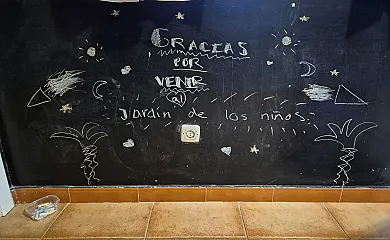 GRACIAS
POR
VENIR
(al)
Jardin de los niños.